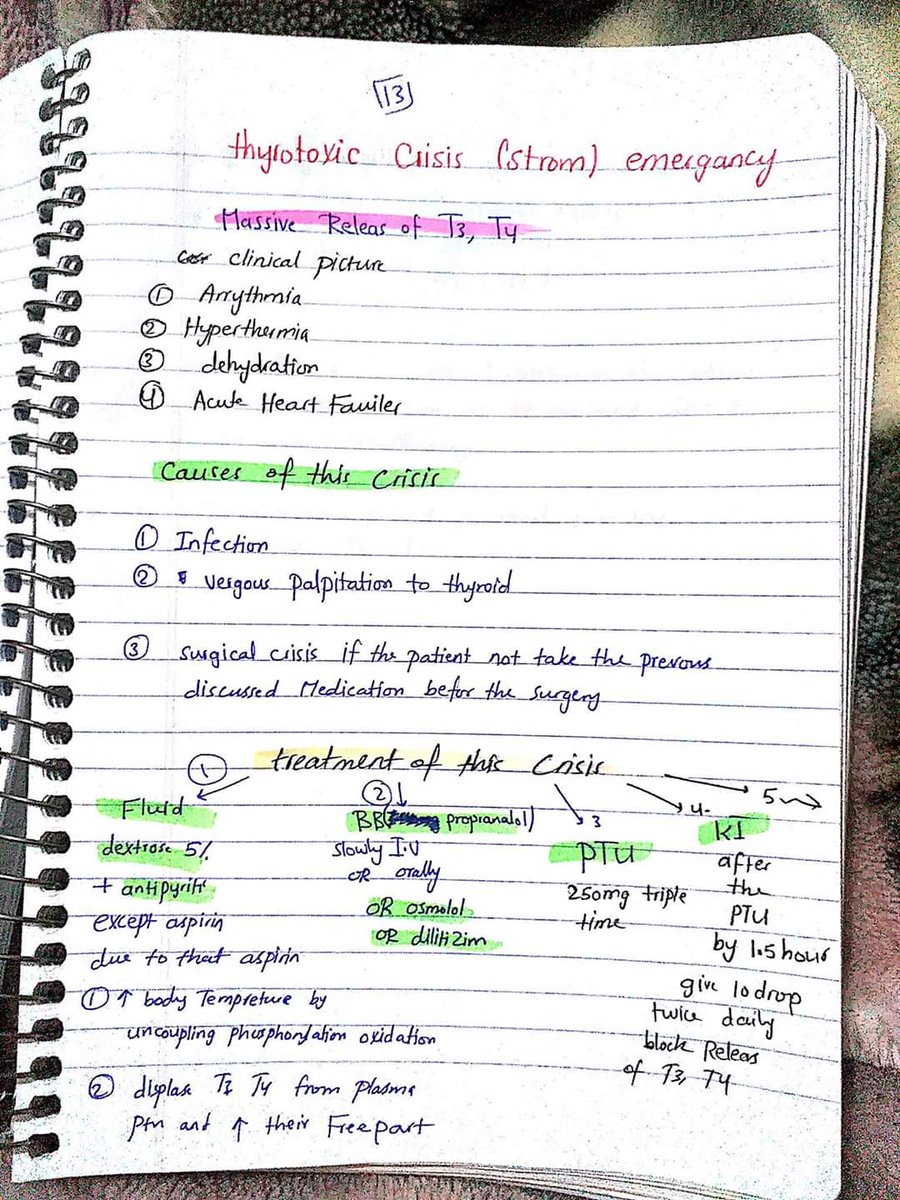 13
thyrotoxic Crisis (strom) emergancy
Massive Releas of T3, T4
clinical picture
① Arrythmia
② Hyperthermia
③ dehydration
④ Acute Heart Fauiler
Causes of this Crisis
① Infection
② vergous palpitation to thyroid
③ surgical crisis if the patient not take the prevous
discussed Medication befor the surgery
treatment of this Crisis
①
Fluid
dextrose 5%
+ antipyritc
except aspirin
due to that aspirin
① ↑ body Tempreture by
uncoupling phosphorylation oxidation
② displase T3 T4 from plasma
ptn and ↑ their Free part
②
BB( propranalol)
slowly I.V
OR orally
OR osmolol
OR dilitizim
3
PTU
250mg triple
time
4-
KI
after
the
PTU
by 1.5 hour
give 10 drop
twice daily
block Releas
of T3, T4
5